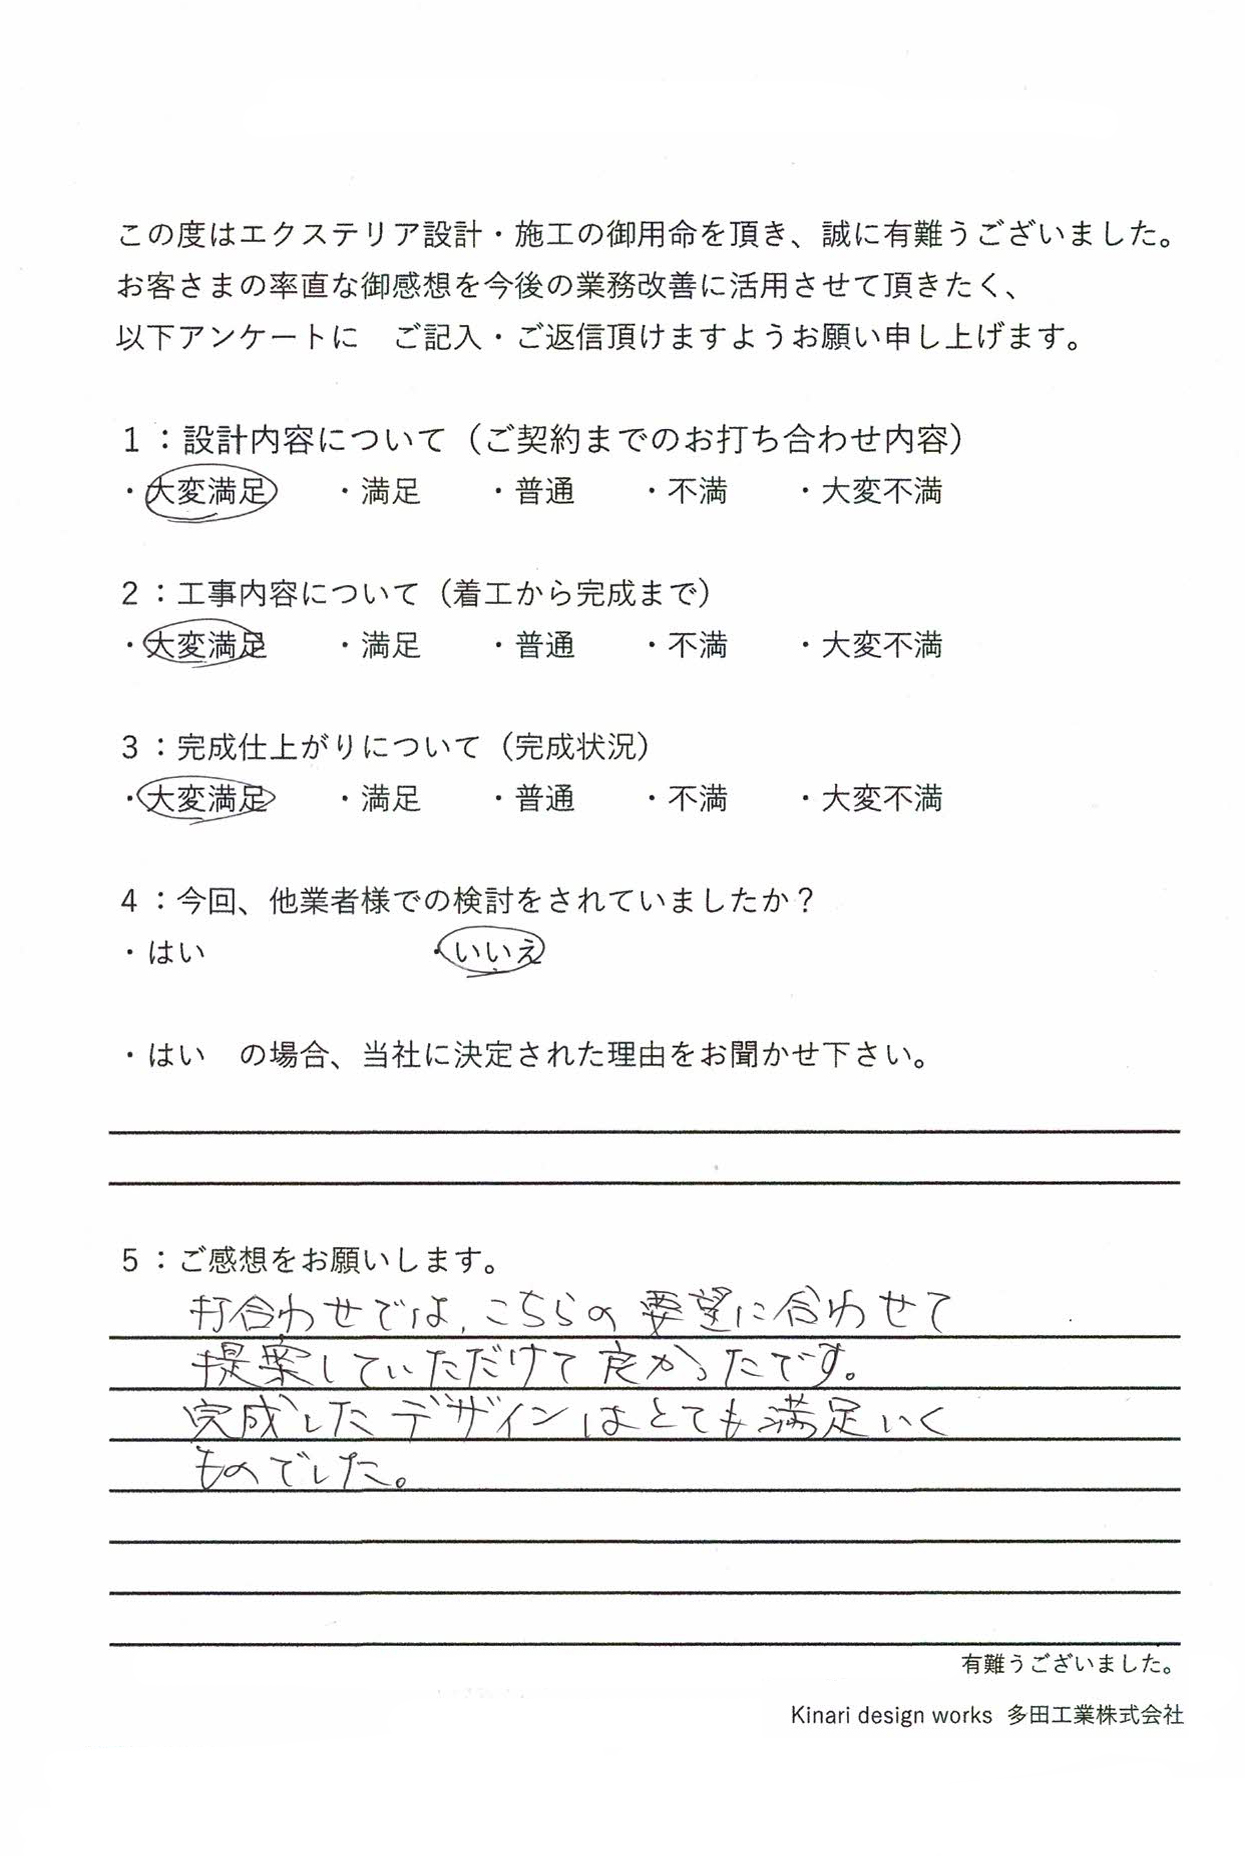 この度はエクステリア設計・施工の御用命を頂き、誠に有難うございました。
お客さまの率直な御感想を今後の業務改善に活用させて頂きたく、
以下アンケートに　ご記入・ご返信頂けますようお願い申し上げます。
１：設計内容について（ご契約までのお打ち合わせ内容）
・大変満足　　・満足　　・普通　　・不満　　・大変不満
２：工事内容について（着工から完成まで）
・大変満足　　・満足　　・普通　　・不満　　・大変不満
３：完成仕上がりについて（完成状況）
・大変満足　　・満足　　・普通　　・不満　　・大変不満
４：今回、他業者様での検討をされていましたか？
・はい　　　　　　　・いいえ
・はい　の場合、当社に決定された理由をお聞かせ下さい。
５：ご感想をお願いします。
打合わせでは、こちらの要望に合わせて
提案していただけて良かったです。
完成したデザインはとても満足いく
ものでした。
有難うございました。
Kinari design works 多田工業株式会社